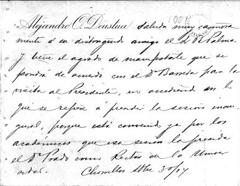 Alejandro O. Deustua saluda muy atenta
mente á su distinguido amigo el Dr. Palma
y tiene el agrado de manifestarle que se
pondrá de acuerdo con el Dr. Barreda para la
visita al Presidente, no accediendo en lo
que se refiere á presidir la sesión inau
gural, porque está convenido ya por los
académicos que esa sesión la presida
el Dr. Prado como Rector de la Univer
sidad.
Chorrillos 30/17